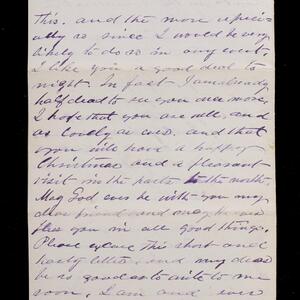 This. and the more especi-
ally so since I would be very
likely to do so in any event.
I like you a good deal to
night. In fact I am already
half dead to see you once more.
I hope that you are well, and
as lovely as ever. and that
you will have a happy
Christmas and a pleasant
visit in the parts to the north.
May God ever be with you my
dear friend and may he ever
bless you in all good things.
Please excuse this short and
hasty letter, and my dear
be so good as to write to me
soon, I am and ever